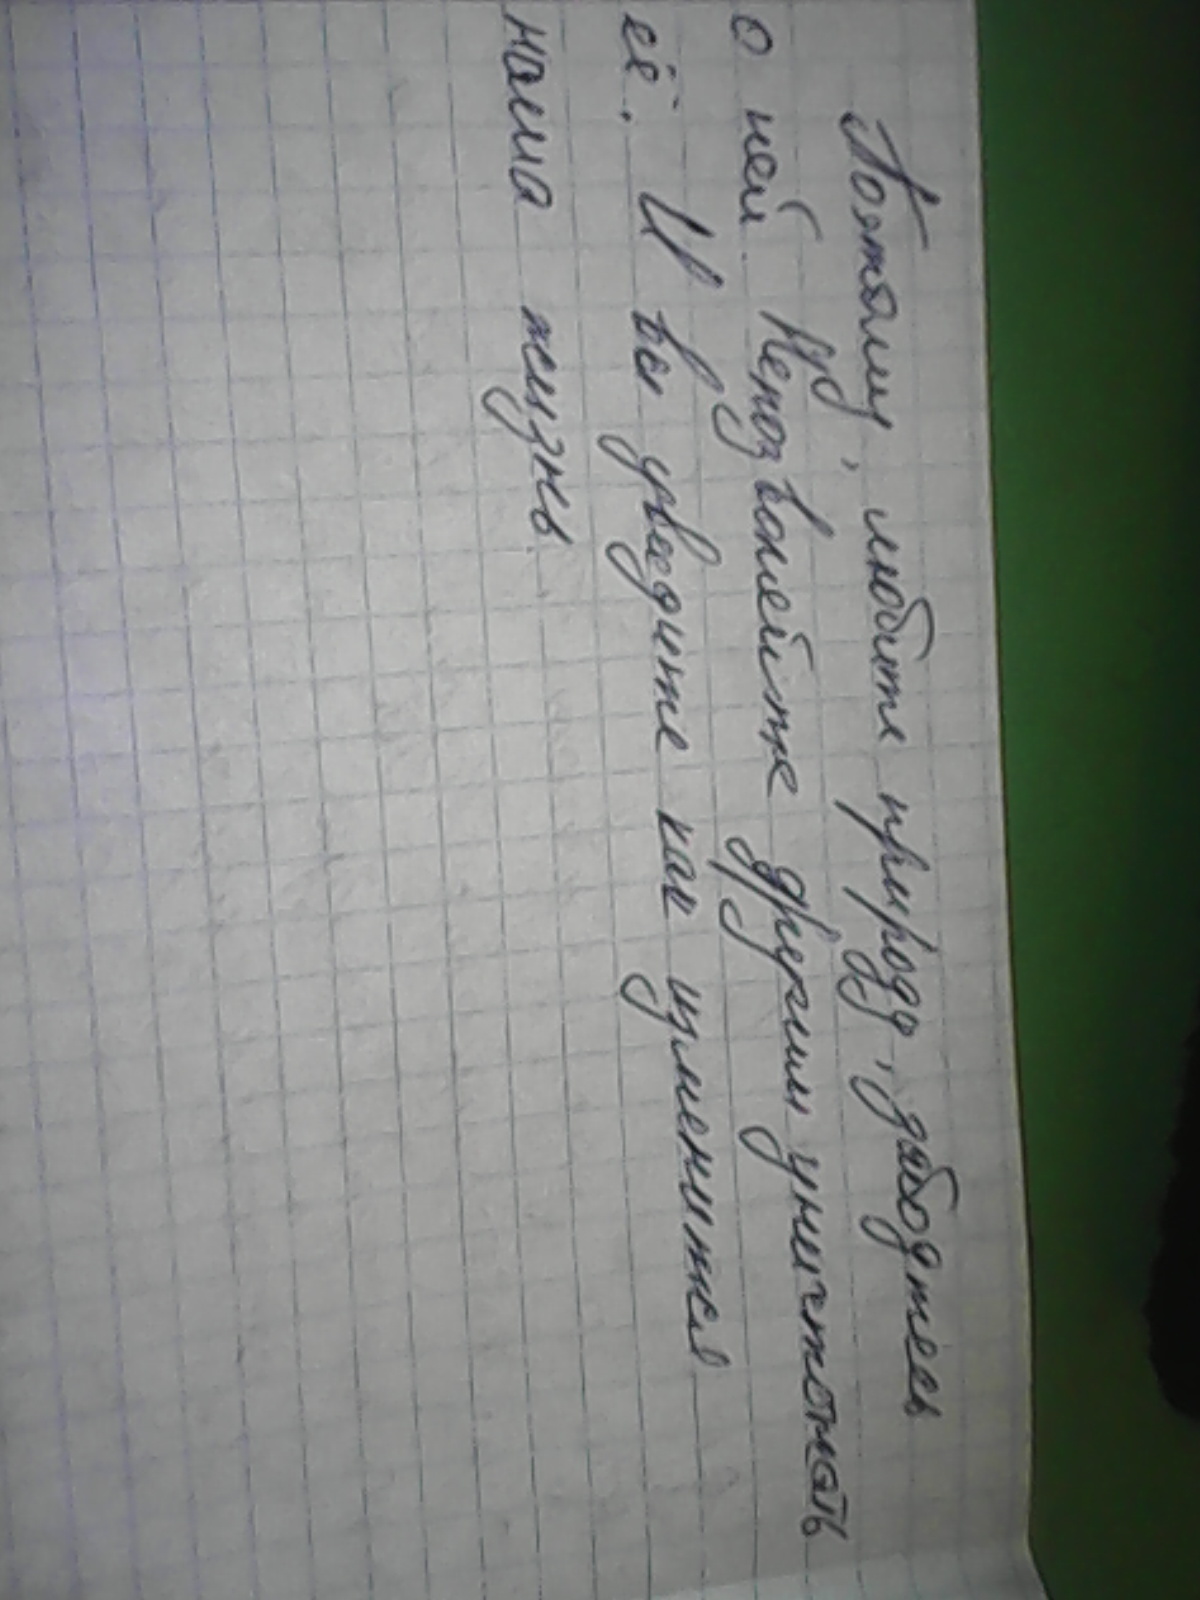 Поэтому, любите природу, заботтесь
о ней Непозволейте другим уничтожать
её. И вы увидите как изменится
наша жизнь